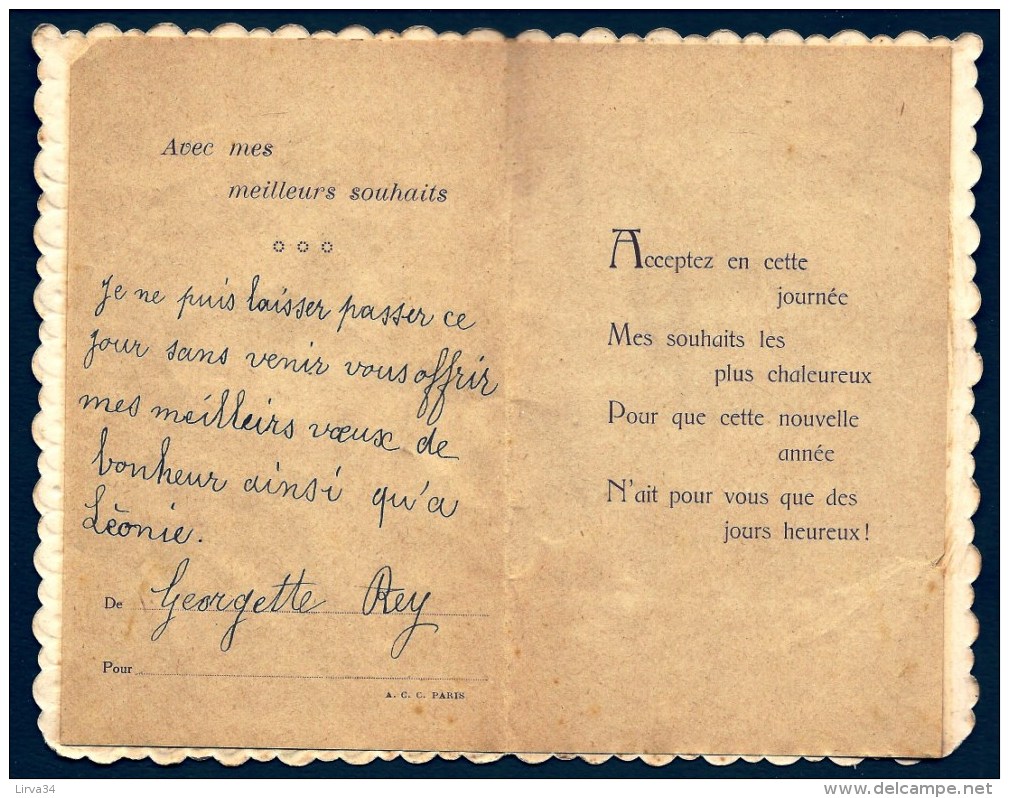 Avec mes
meilleurs souhaits
Je ne puis laisser passer ce
jour sans venir vous offrir
mes meilleirs vœux de
bonheur ainsi qu'a
Lèonie.
De Georgette Rey
Pour
A. C. C. PARIS
Acceptez en cette
journée
Mes souhaits les
plus chaleureux
Pour que cette nouvelle
année
N'ait pour vous que des
jours heureux!
Lirva34
www.delcampe.net